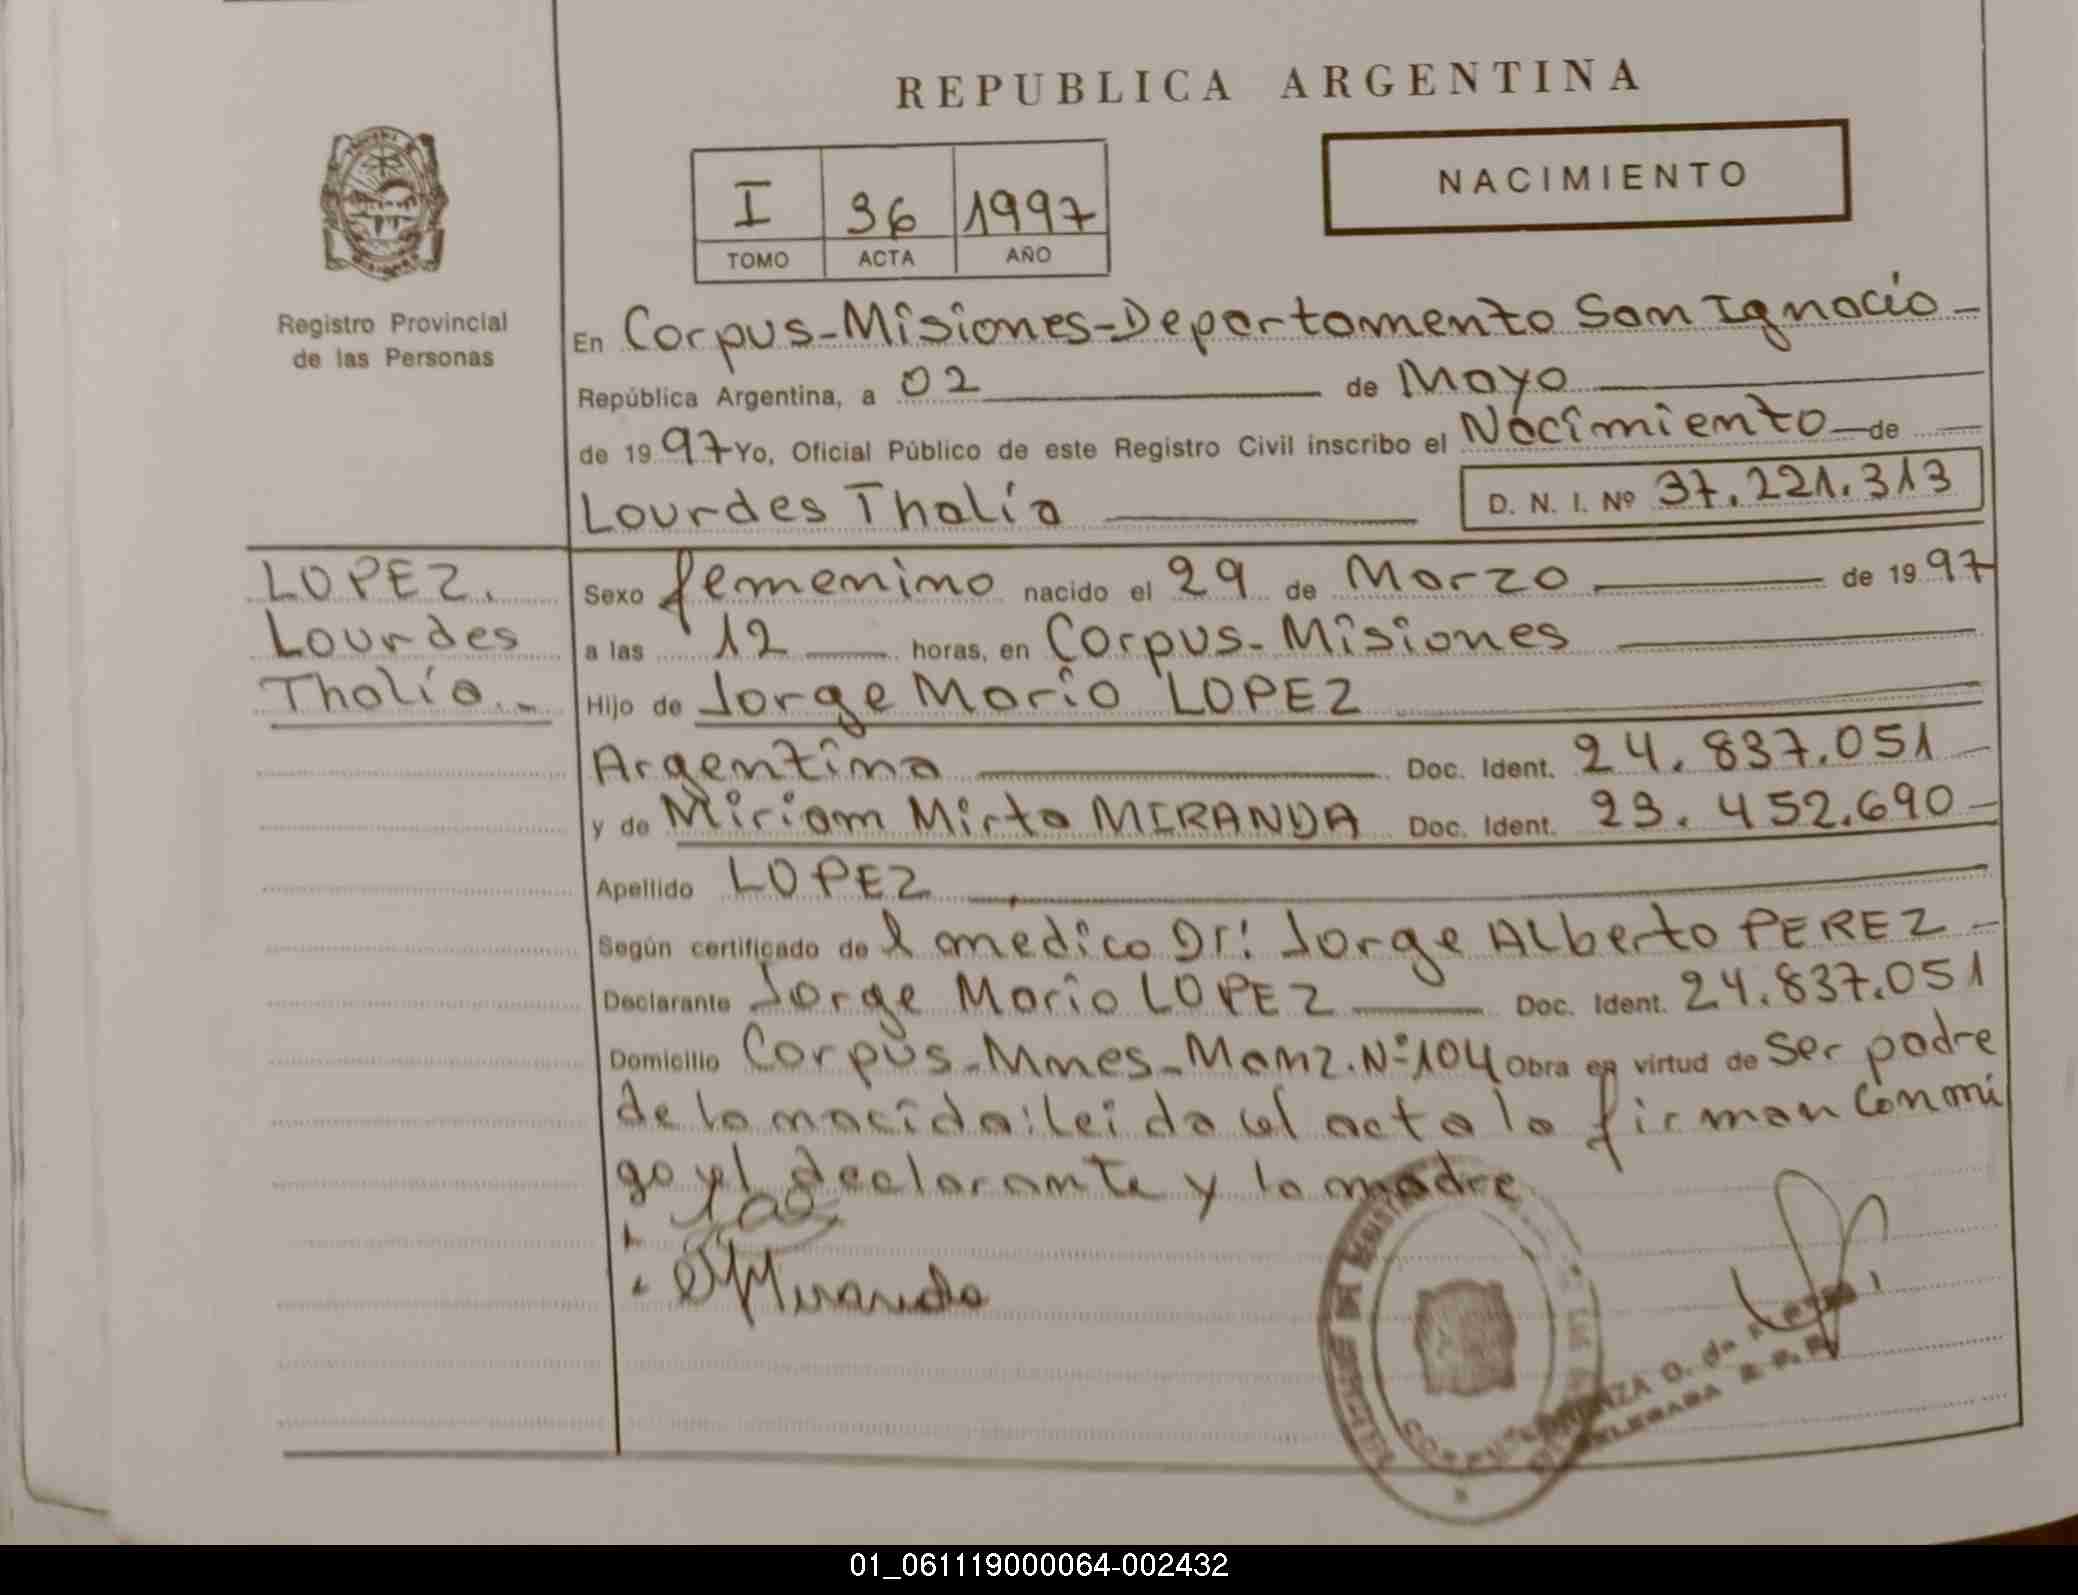 REPUBLICA ARGENTINA
NACIMIENTO
I 36 1997
TOMO ACTA AÑO
Registro Provincial
de las Personas
En Corpus-Misiones-Departamento San Ignacio-
República Argentina, a 02 de Mayo
de 1997 Yo, Oficial Público de este Registro Civil inscribo el Nacimiento de
Lourdes Thalía D. N. I. Nº 37.221.313
LOPEZ.
Lourdes
Thalía.-
Sexo femenino nacido el 29 de Marzo de 1997
a las 12 horas, en Corpus-Misiones
Hijo de Jorge Mario LOPEZ
Argentina Doc. Ident. 24.837.051
y de Miriam Mirta MIRANDA Doc. Ident. 23.452.690-
Apellido LOPEZ
Según certificado de l medico Dr: Jorge Alberto PEREZ-
Declarante Jorge Mario LOPEZ Doc. Ident. 24.837.051
Domicilio Corpus-Mnes-Manz.Nº104 Obra en virtud de ser padre
de la nacida: leida el acta la firman conmi
go el declarante y la madre
Miranda
CORPUS
O. de
DELEGADA
01_061119000064-002432